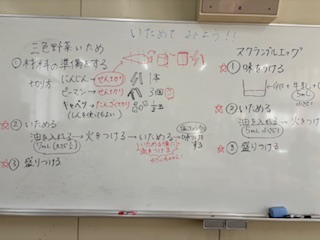 いためて みよう!!
三色野菜いため
①材料の準備をする
切り方
にんじん→せん切り 1本
ピーマン→せん切り 3個
キャベツ→たんざく切り
(しんを使わない)
☆②いためる
油を入れる→火をつける→いためる→味つけ
する
☆③盛りつける
スクランブルエッグ
☆①味をつける
5mL
☆②いためる
油を入れる→火をつける
☆③盛りつける